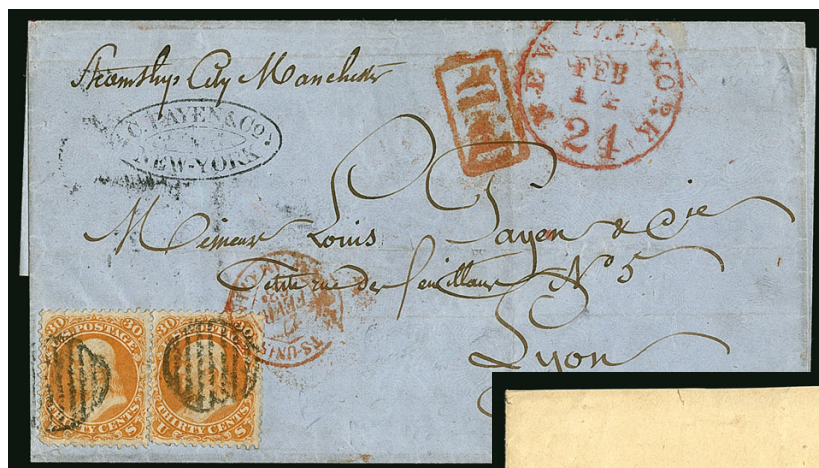 Steamship City Manchester
C. PAYEN & CO.
NEW-YORK
NEW PAID YORK
FEB
14
24
P.D.
Messieurs Louis Payen & Cie
Petite rue des feuillans No 5
Lyon
30 30
U.S. POSTAGE
THIRTY CENTS
U S
30 30
U.S. POSTAGE
THIRTY CENTS
U S